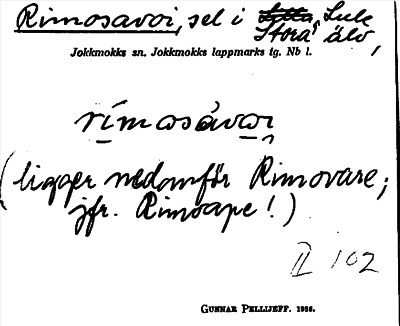 Rimosavoi, sel i Stora Lule älv,
Jokkmokks sn. Jokkmokks lappmarks tg. Nb l.
rímosávoi
(ligger nedomför Rimovare;
jfr. Rimoape!)
II 102
GUNNAR PELLIJEFF. 1986.